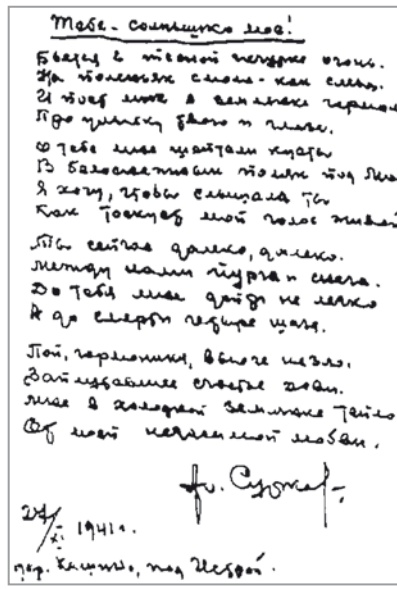 Тебе - солнышко мое!
Бьется в тесной печурке огонь.
На поленьях смола - как слеза.
И поет мне в землянке гармонь
Про улыбку твою и глаза.
О тебе мне шептали кусты
В белоснежных полях под Мос
Я хочу, чтобы слышала ты
Как тоскует мой голос живой
Ты сейчас далеко, далеко.
Между нами пурга и снега.
До тебя мне дойти не легко
А до смерти четыре шага.
Пой, гармоника, вьюге назло.
Заплутавшее счастье зови.
Мне в холодной землянке тепло
От моей негасимой любви.
Ал. Сурков
27/XI 1941 г.
дер. Кашино, под Истрой.